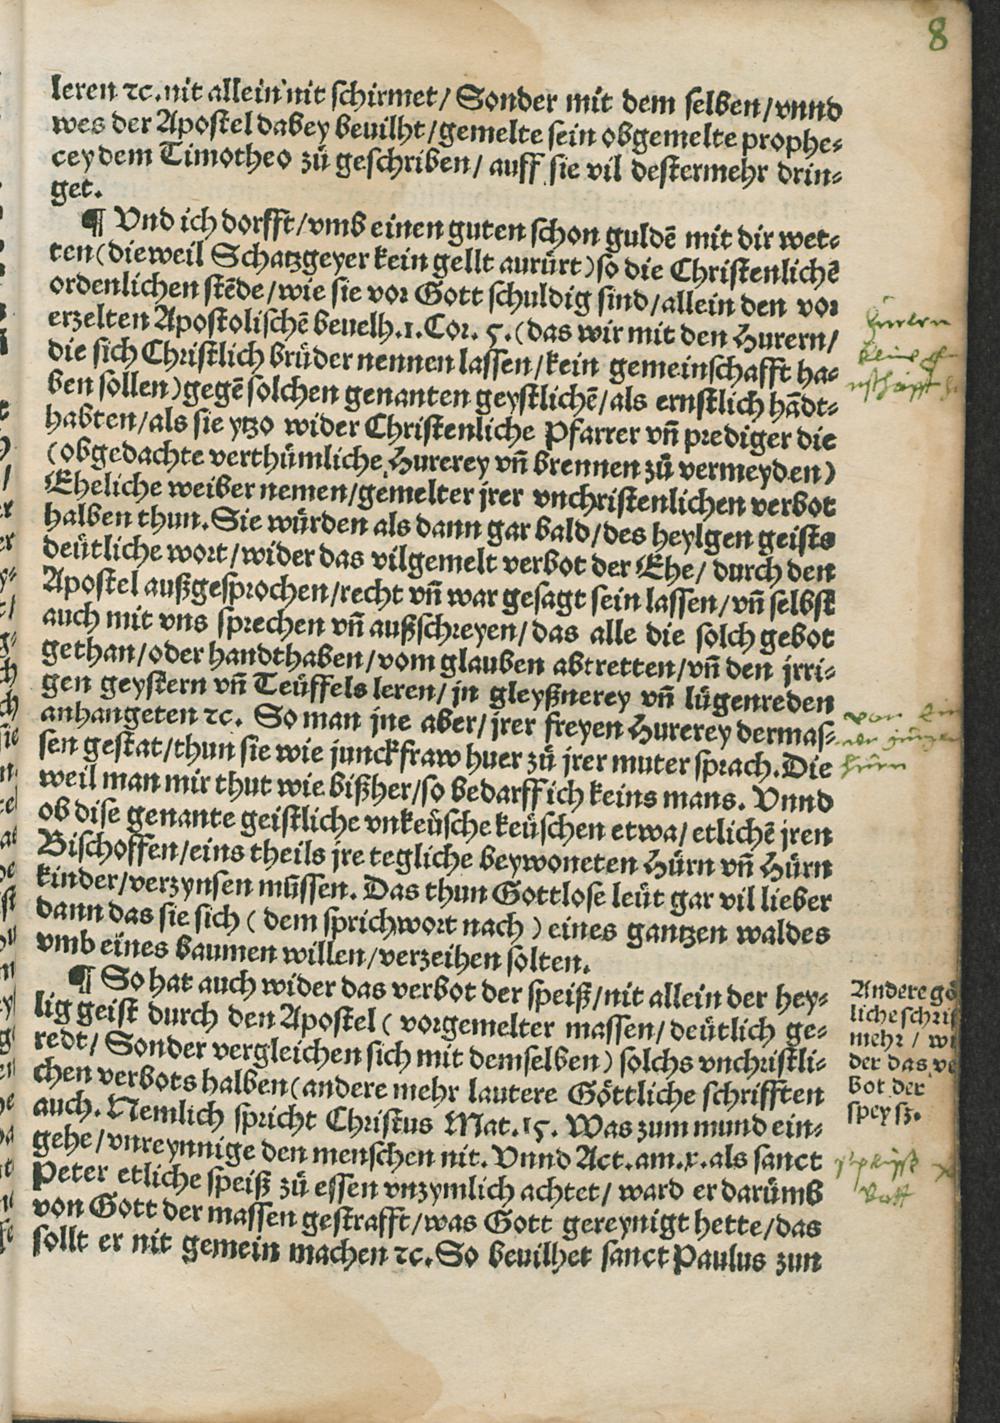 8
leren ꝛc. nit allein nit schirmet/ Sonder mit dem selben/ vnnd
wes der Apostel dabey beuilht/ gemelte sein obgemelte prophe⸗
cey dem Timotheo zů geschriben/ auff sie vil destermehr drin⸗
get.
¶ Vnd ich dorfft/ vmb einen guten schon guldē mit dir wet⸗
ten (dieweil Schatzgeyer kein gellt anrürt) so die Christenlichē
ordenlichen stēde/ wie sie vor Gott schuldig sind/ allein den vor
erzelten Apostolischē beuelh. 1. Cor. 5. (das wir mit den Hurern/
die sich Christlich brüder nennen lassen/ kein gemeinschafft ha⸗
ben sollen) gegē solchen genanten geystlichē/ als ernstlich hādt⸗
habten/ als sie ytzo wider Christenliche Pfarrer vn̄ prediger die
(obgedachte verthümliche Hurerey vn̄ brennen zů vermeyden)
Eheliche weiber nemen/ gemelter jrer vnchristenlichen verbot
halben thun. Sie würden als dann gar bald/ des heylgen geists
deütliche wort/ wider das vilgemelt verbot der Ehe/ durch den
Apostel außgesprochen/ recht vn̄ war gesagt sein lassen/ vn̄ selbst
auch mit vns sprechen vn̄ außschreyen/ das alle die solch gebot
gethan/ oder handthaben/ vom glauben abtretten/ vn̄ den jrri⸗
gen geystern vn̄ Teüffels leren/ jn gleyßnerey vn̄ lügenreden
anhangeten ꝛc. So man jne aber/ jrer freyen Hurerey dermas⸗
sen gestat/ thun sie wie junckfraw huer zů jrer muter sprach. Die
weil man mir thut wie bißher/ so bedarff ich keins mans. Vnnd
ob dise genante geistliche vnkeüsche keüschen etwa/ etlichē jren
Bischoffen/ eins theils jre tegliche beywoneten Hürn vn̄ Hürn
kinder/ verzynsen müssen. Das thun Gottlose leüt gar vil lieber
dann das sie sich (dem sprichwort nach) eines gantzen waldes
vmb eines baumen willen/ verzeihen solten.
¶ So hat auch wider das verbot der speiß/ nit allein der hey⸗
lig geist durch den Apostel (vorgemelter massen/ deütlich ge⸗
redt/ Sonder vergleichen sich mit demselben) solchs vnchristli⸗
chen verbots halben (andere mehr lautere Göttliche schrifften
auch. Nemlich spricht Christus Mat. 15. Was zum mund ein⸗
gehe/ vnreynnige den menschen nit. Vnnd Act. am. x. als sanct
Peter etliche speiß zů essen vnzymlich achtet/ ward er darümb
von Gott der massen gestrafft/ was Gott gereynigt hette/ das
sollt er nit gemein machen ꝛc. So beuilhet sanct Paulus zun
Andere gö
liche schrif
mehr / wi
der das ve
bot der
speysz.